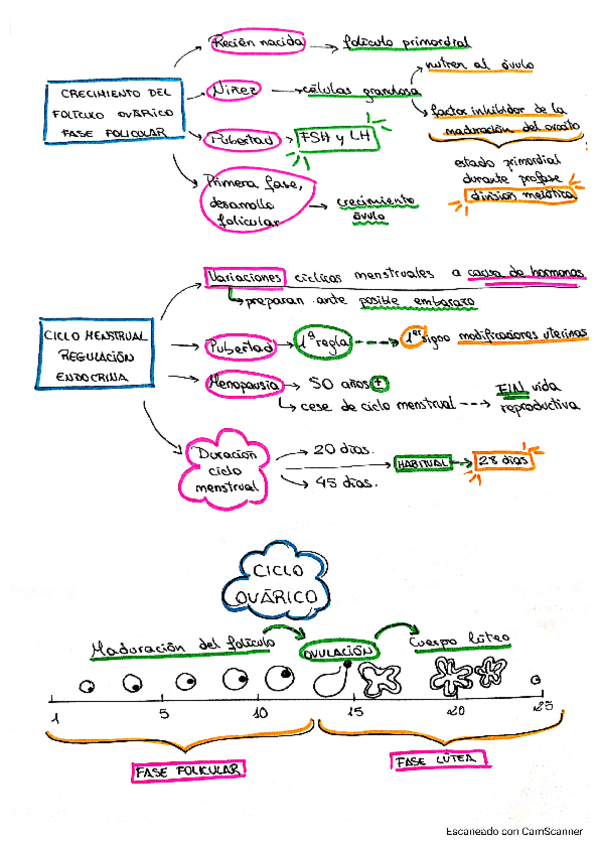 CRECIMIENTO DEL
FOLÍCULO OVÁRICO
FASE FOLICULAR
Recién nacida
folículo primordial
Niñez
células granulosa
nutren al óvulo
factor inhibidor de la
maduración del ovocito
estado primordial
durante profase
división meiótica
Pubertad
FSH y LH
Primera fase,
desarrollo
folicular
crecimiento
óvulo
CICLO MENSTRUAL
REGULACIÓN
ENDOCRINA
Variaciones cíclicas menstruales a causa de hormonas
preparan ante posible embarazo
Pubertad
1ª regla
1er signo modificaciones uterinas
Menopausia
50 años +
cese de ciclo menstrual
FIN vida
reproductiva
Duración
ciclo
menstrual
20 días.
45 días.
HABITUAL
28 días
CICLO
OVÁRICO
Maduración del folículo
OVULACIÓN
Cuerpo lúteo
1 5 10 15 20 25
FASE FOLICULAR
FASE LÚTEA
Escaneado con CamScanner